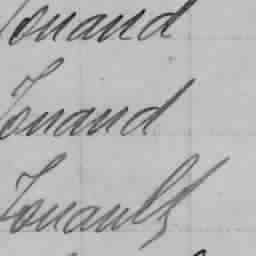 Touand
Touand
Touault